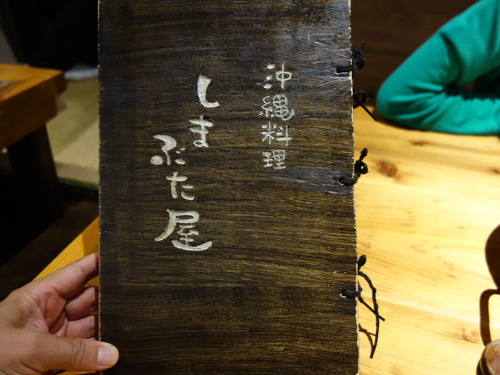 沖縄料理
しまぶた屋